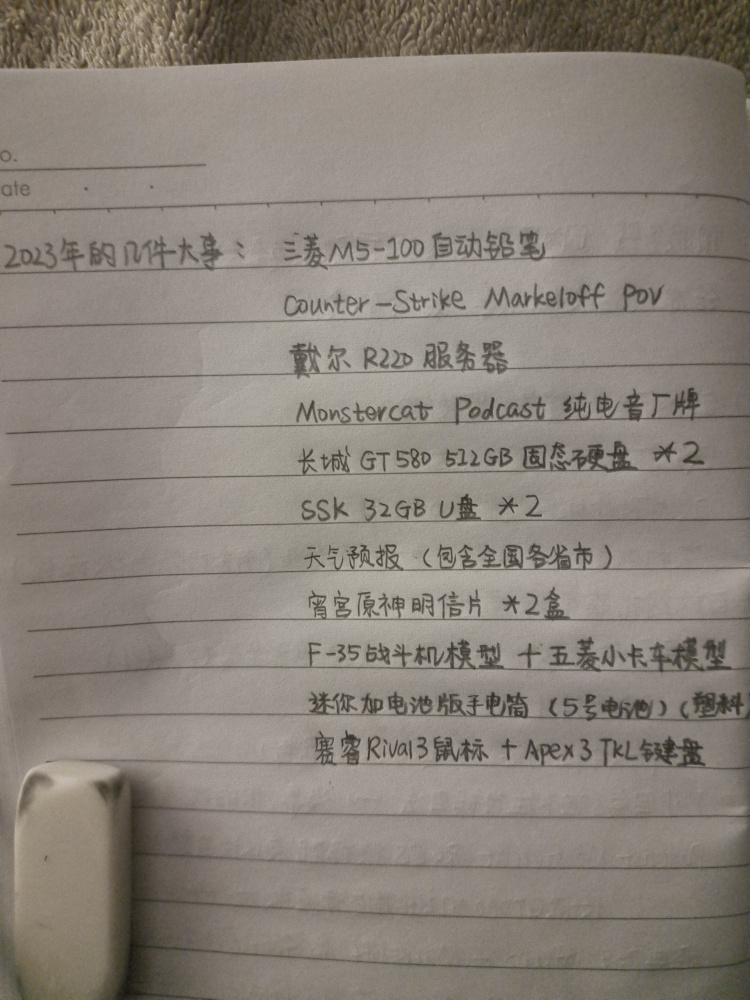 o.
ate
2023年的几件大事：三菱M5-100自动铅笔
Counter-Strike Markeloff POV
戴尔 R220 服务器
Monstercat Podcast 纯电音厂牌
长城 GT580 512GB 固态硬盘 *2
SSK 32GB U盘 *2
天气预报（包含全国各省市）
宵宫原神明信片 *2盒
F-35战斗机模型 + 五菱小卡车模型
迷你加电池版手电筒（5号电池）（塑料
赛睿Rival3鼠标 + Apex3 TKL键盘